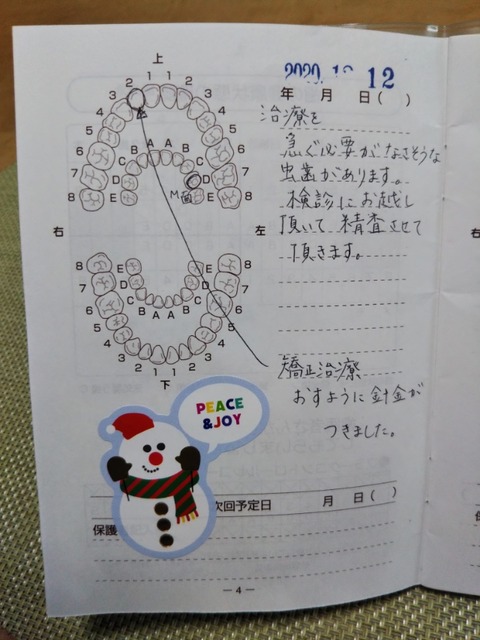 上
2 1 1 2
3 3
4 4
5 5
6 6
7 7
8 8
B A A B
C C
D D
E E
M歯
右 左
8 8
7 7
6 6
5 5
4 4
3 3
2 1 1 2
E E
D D
C C
B A A B
下
2020. 12
年 月 日( )
治療を
急ぐ必要がなさそうな
虫歯があります。
検診にお越し
頂いて精査させて
頂きます。
矯正治療
おすように針金が
つきました。
PEACE
&JOY
次回予定日 月 日( )
保護
右
− 4 −